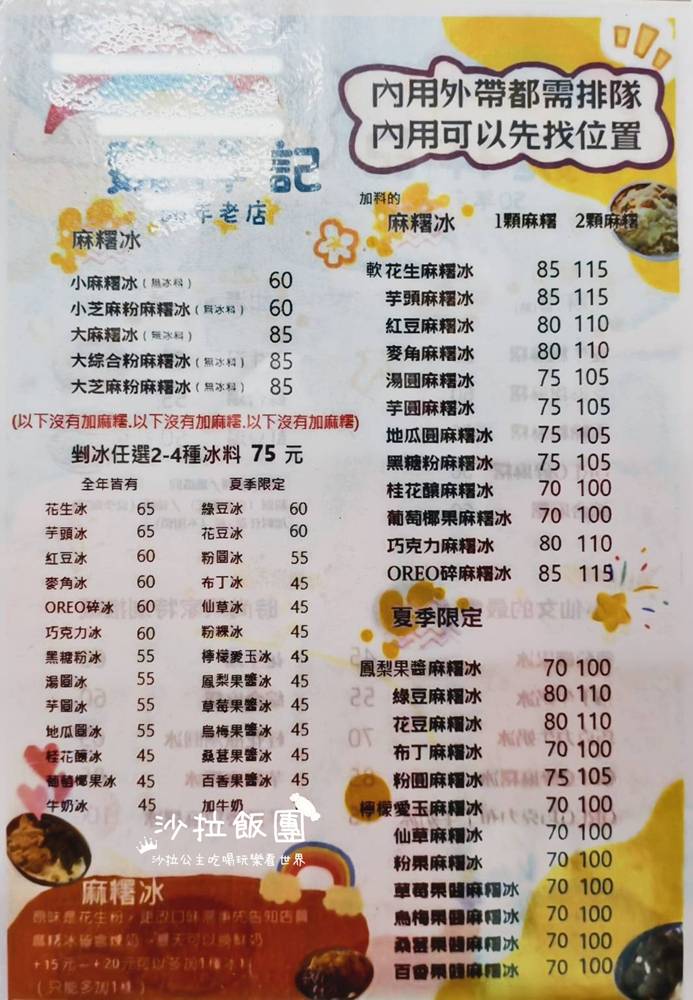 內用外帶都需排隊
內用可以先找位置
記
年老店
麻糬冰
小麻糬冰(無冰料) 60
小芝麻粉麻糬冰(無冰料) 60
大麻糬冰(無冰料) 85
大綜合粉麻糬冰(無冰料) 85
大芝麻粉麻糬冰(無冰料) 85
(以下沒有加麻糬.以下沒有加麻糬.以下沒有加麻糬)
剉冰任選2-4種冰料 75 元
全年皆有 夏季限定
花生冰 65 綠豆冰 60
芋頭冰 65 花豆冰 60
紅豆冰 60 粉圓冰 55
麥角冰 60 布丁冰 45
OREO碎冰 60 仙草冰 45
巧克力冰 60 粉粿冰 45
黑糖粉冰 55 檸檬愛玉冰 45
湯圓冰 55 鳳梨果醬冰 45
芋圓冰 55 草莓果醬冰 45
地瓜圓冰 55 烏梅果醬冰 45
桂花釀冰 45 桑葚果醬冰 45
葡萄椰果冰 45 百香果醬冰 45
牛奶冰 45 加牛奶
加料的
麻糬冰 1顆麻糬 2顆麻糬
軟花生麻糬冰 85 115
芋頭麻糬冰 85 115
紅豆麻糬冰 80 110
麥角麻糬冰 80 110
湯圓麻糬冰 75 105
芋圓麻糬冰 75 105
地瓜圓麻糬冰 75 105
黑糖粉麻糬冰 75 105
桂花釀麻糬冰 70 100
葡萄椰果麻糬冰 70 100
巧克力麻糬冰 80 110
OREO碎麻糬冰 85 115
夏季限定
鳳梨果醬麻糬冰 70 100
綠豆麻糬冰 80 110
花豆麻糬冰 80 110
布丁麻糬冰 70 100
粉圓麻糬冰 75 105
檸檬愛玉麻糬冰 70 100
仙草麻糬冰 70 100
粉粿麻糬冰 70 100
草莓果醬麻糬冰 70 100
烏梅果醬麻糬冰 70 100
桑葚果醬麻糬冰 70 100
百香果醬麻糬冰 70 100
沙拉飯團
沙拉公主吃喝玩樂看世界
麻糬冰
原味是花生粉,更改口味要事先告知店員
麻糬冰都會煉奶 夏天可以換鮮奶
+15元~+20元可以多加1種冰料
(只能多加1種)